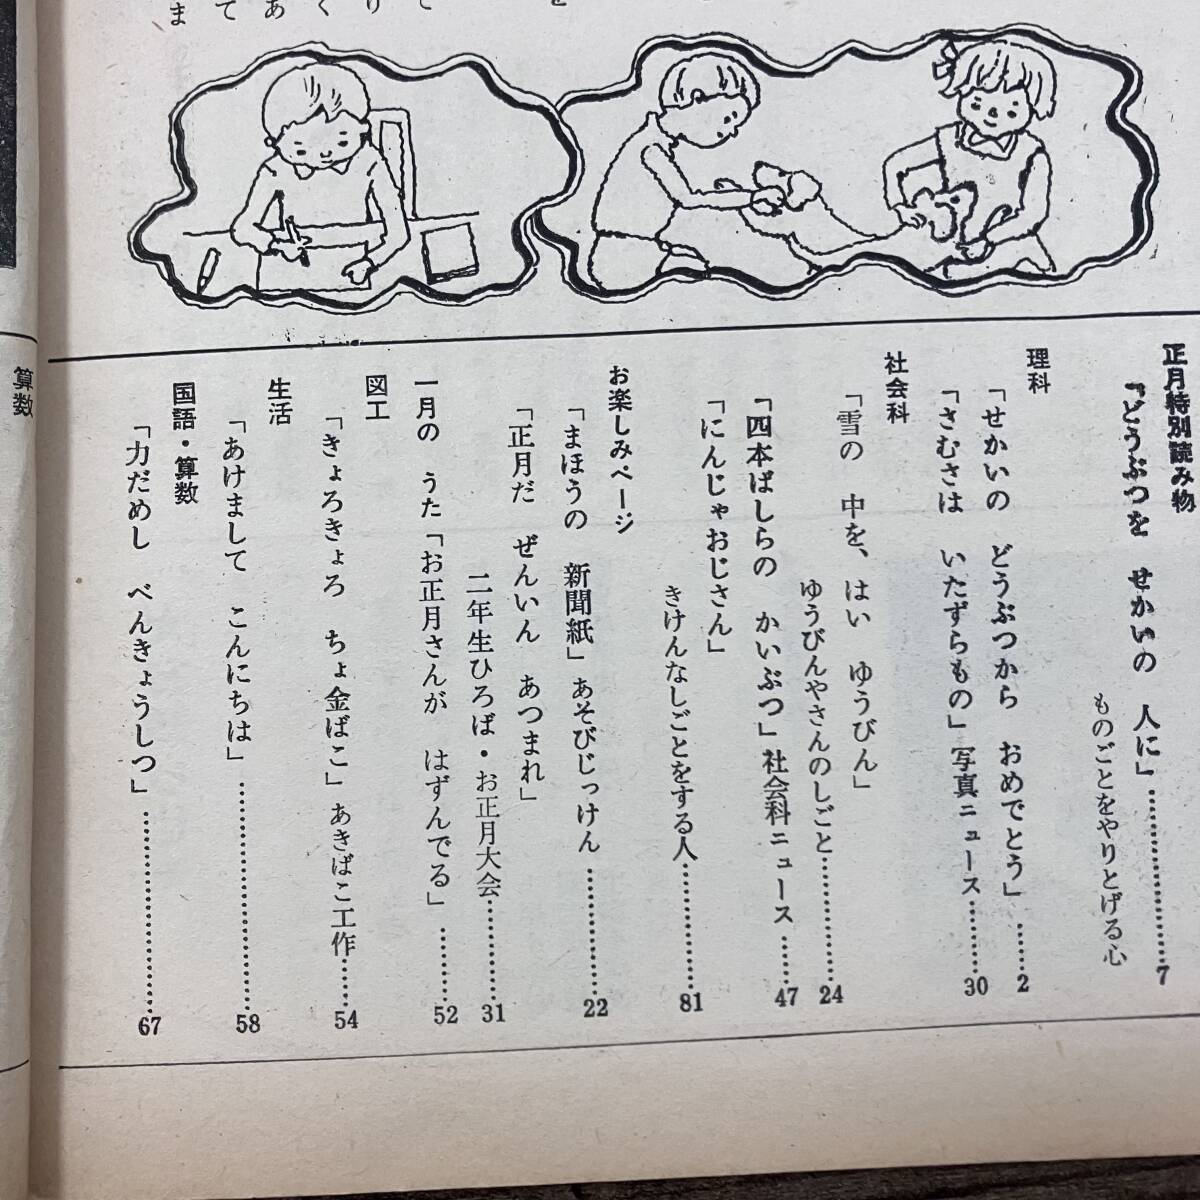 正月特別読み物
「どうぶつを せかいの 人に」………7
ものごとをやりとげる心
理科
「せかいの どうぶつから おめでとう」……2
「さむさは いたずらもの」写真ニュース………30
社会科
「雪の 中を、はい ゆうびん」
ゆうびんやさんのしごと…………24
「四本ばしらの かいぶつ」社会科ニュース……47
「にんじゃおじさん」
きけんなしごとをする人…………81
お楽しみページ
「まほうの 新聞紙」あそびじっけん…………22
「正月だ ぜんいん あつまれ」
二年生ひろば・お正月大会………31
一月の うた「お正月さんが はずんでる」………52
図工
「きょろきょろ ちょ金ばこ」あきばこ工作……54
生活
「あけまして こんにちは」…………………58
国語・算数
「力だめし べんきょうしつ」………………67
算数